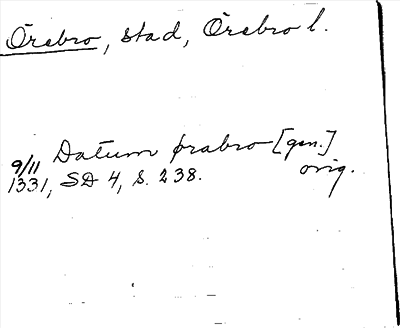 Örebro, stad, Örebro l.
Datum ørabro [gen.]
9/11 1331, SD 4, S. 238. orig.